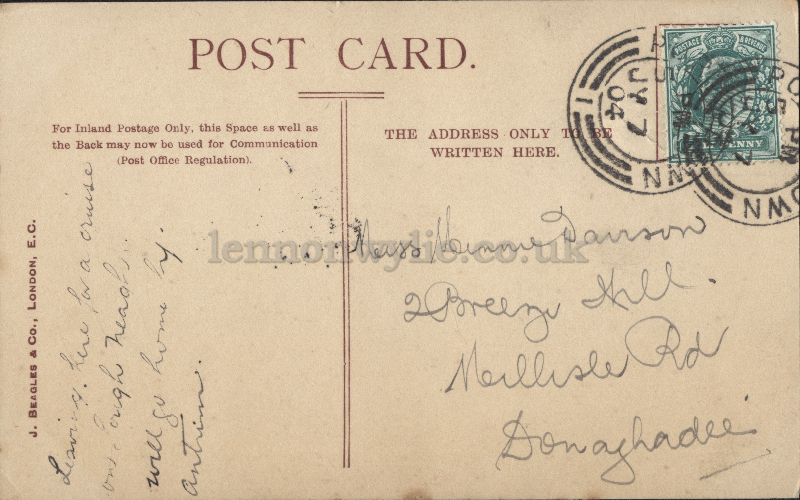 POST CARD.
For Inland Postage Only, this Space as well as
the Back may now be used for Communication
(Post Office Regulation).
THE ADDRESS ONLY TO BE
WRITTEN HERE.
POSTAGE & REVENUE
PENNY
JY 7
04
1
PM
OWN
J. BEAGLES & CO., LONDON, E.C.
Leaving here for a cruise
on Lough Neagh
will go home by
Antrim.
Miss Minnie Davison
2 Breeze Hill.
Millisle Rd
Donaghadee
lennonwylie.co.uk